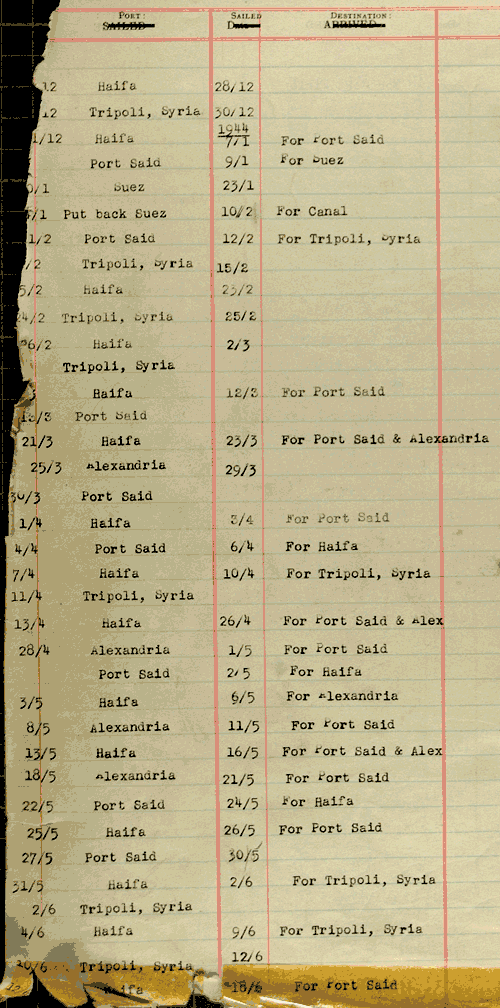 PORT: SAILED DESTINATION:
SAILED Date ARRIVED
12 Haifa 28/12
12 Tripoli, Syria 30/12
1944
1/12 Haifa 7/1 For Port Said
Port Said 9/1 For Suez
/1 Suez 23/1
/1 Put back Suez 10/2 For Canal
1/2 Port Said 12/2 For Tripoli, Syria
/2 Tripoli, Syria 15/2
5/2 Haifa 23/2
4/2 Tripoli, Syria 25/2
26/2 Haifa 2/3
Tripoli, Syria
3 Haifa 12/3 For Port Said
Port Said
21/3 Haifa 23/3 For Port Said & Alexandria
25/3 Alexandria 29/3
30/3 Port Said
1/4 Haifa 3/4 For Port Said
4/4 Port Said 6/4 For Haifa
7/4 Haifa 10/4 For Tripoli, Syria
11/4 Tripoli, Syria
13/4 Haifa 26/4 For Port Said & Alex
28/4 Alexandria 1/5 For Port Said
Port Said 2/5 For Haifa
3/5 Haifa 6/5 For Alexandria
8/5 Alexandria 11/5 For Port Said
13/5 Haifa 16/5 For Port Said & Alex
18/5 Alexandria 21/5 For Port Said
22/5 Port Said 24/5 For Haifa
25/5 Haifa 26/5 For Port Said
27/5 Port Said 30/5
31/5 Haifa 2/6 For Tripoli, Syria
2/6 Tripoli, Syria
4/6 Haifa 9/6 For Tripoli, Syria
10/6 Tripoli, Syria 12/6
Haifa 18/6 For Port Said